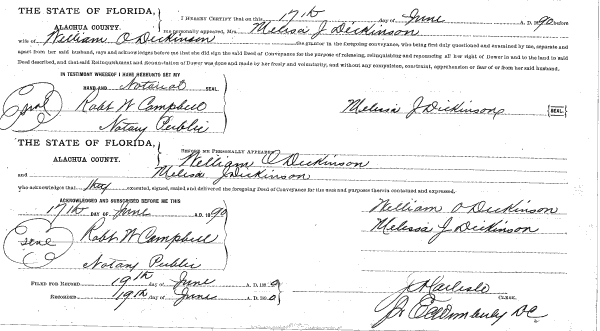 THE STATE OF FLORIDA,
ALACHUA COUNTY.
I HEREBY CERTIFY that on this 17th day of June A. D. 1890 before
me personally appeared, Mrs. Melissa J Dickinson
wife of William O Dickinson the grantor in the foregoing conveyance, who being first duly questioned and examined by me, separate and
apart from her said husband, says and acknowledges before me that she did sign the said Deed of Conveyance for the purpose of releasing, relinquishing and reconveying all her right of Dower in and to the land in said
Deed described, and that said Relinquishment and Renunciation of Dower was done and made by her freely and voluntarily, and without any compulsion, constraint, apprehension or fear of or from her said husband.
IN TESTIMONY WHEREOF I HAVE HEREUNTO SET MY
HAND AND Notarial SEAL.
Seal
Robt W Campbell
Notary Public
Melissa J Dickinson
SEAL
THE STATE OF FLORIDA,
ALACHUA COUNTY.
BEFORE ME PERSONALLY APPEARED
William O Dickinson
and Melissa J Dickinson
who acknowledges that they executed, signed, sealed and delivered the foregoing Deed of Conveyance for the uses and purposes therein contained and expressed.
ACKNOWLEDGED AND SUBSCRIBED BEFORE ME THIS
17th DAY OF June A.D. 1890
Seal
Robt W Campbell
Notary Public
William O Dickinson
Melissa J Dickinson
FILED FOR RECORD 19th day of June A. D. 1890
RECORDED 19th day of June A. D. 1890
CLERK.
DC